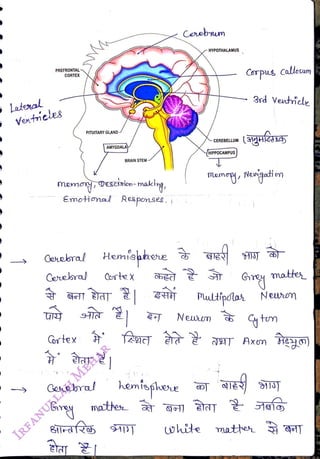 Cerebrum
HYPOTHALAMUS
PREFRONTAL
CORTEX
Corpus Callosum
3rd Ventricle
Lateral
Ventricles
PITUITARY GLAND
CEREBELLUM
अनुमस्तिष्क
AMYGDALA
HIPPOCAMPUS
BRAIN STEM
memory, Navigation
memory, Descision-making,
Emotional Responses.
→ Cerebral Hemisphere के बाहरी भाग को
Cerebral Cortex कहते है जो Grey matter
से बना होता है| इसमें Multipolar Neuron
पाये जाते हैं| इन Neuron के Cyton
Cortex में स्थित होते है तथा Axon मेड्युला
में होता है|
→ Cerebral hemisphere का बाहरी भाग
Grey matter से बना होता है जबकि
आन्तरिक भाग white matter से बना
होता है|